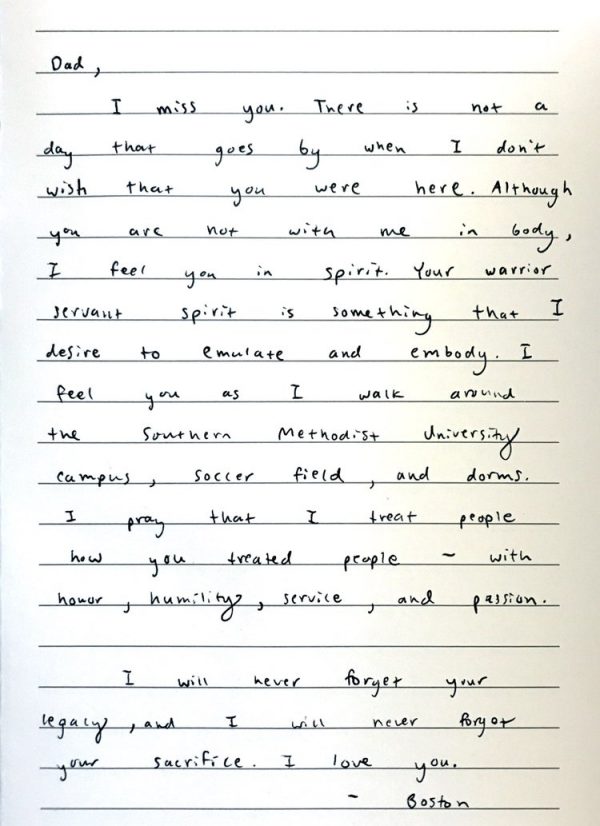 Dad,
I miss you. There is not a
day that goes by when I don't
wish that you were here. Although
you are not with me in body,
I feel you in spirit. Your warrior
servant spirit is something that I
desire to emulate and embody. I
feel you as I walk around
the Southern Methodist University
campus, soccer field, and dorms.
I pray that I treat people
how you treated people - with
honor, humility, service, and passion.
I will never forget your
legacy, and I will never forget
your sacrifice. I love you.
- Boston